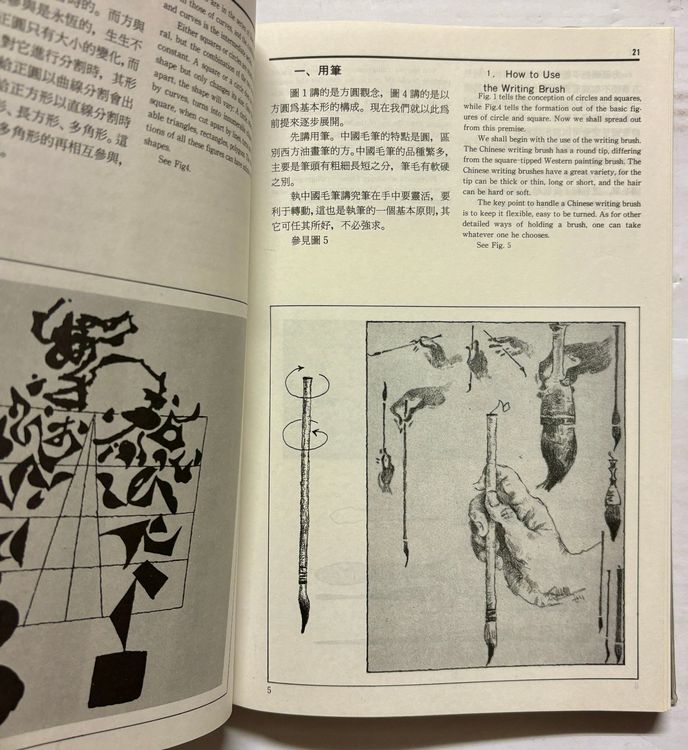 時的。而方與
參與是永恆，生生不
正圓只有大小的變化，而
對它進行分割時，其形
給正圓以曲線分割會出
給正方形以直線分割時
形、長方形、多角形。這
多角形的再相互參與，
are in the
all those of curves, and the
and curves is the intermediate
Either squares or circles
ral, but the combination of the
constant. A square or a circle
shape but only changes its size
apart, the shape will vary: A circle
by curves, turns into innumerable
square, when cut apart by lines,
able triangles, rectangles, polygons. The
tions of all these figures can have
shapes.
See Fig4.
21
一、用筆
圖1講的是方圓觀念，圖4講的是以
方圓爲基本形的構成。現在我們就以此爲
前提來逐步展開。
先講用筆。中國毛筆的特點是圓，區
別西方油畫筆的方。中國毛筆的品種繁多，
主要是筆頭有粗細長短之分，筆毛有軟硬
之別。
執中國毛筆講究筆在手中要靈活，要
利于轉動，這也是執筆的一個基本原則，其
它可任其所好，不必強求。
參見圖5
1. How to Use
the Writing Brush
Fig. 1 tells the conception of circles and squares,
while Fig.4 tells the formation out of the basic fig-
ures of circle and square. Now we shall spread out
from this premise.
We shall begin with the use of the writing brush.
The Chinese writing brush has a round tip, differing
from the square-tipped Western painting brush. The
Chinese writing brushes have a great variety, for the
tip can be thick or thin, long or short, and the hair
can be hard or soft.
The key point to handle a Chinese writing brush
is to keep it flexible, easy to be turned. As for other
detailed ways of holding a brush, one can take
whatever one he chooses.
See Fig. 5
5